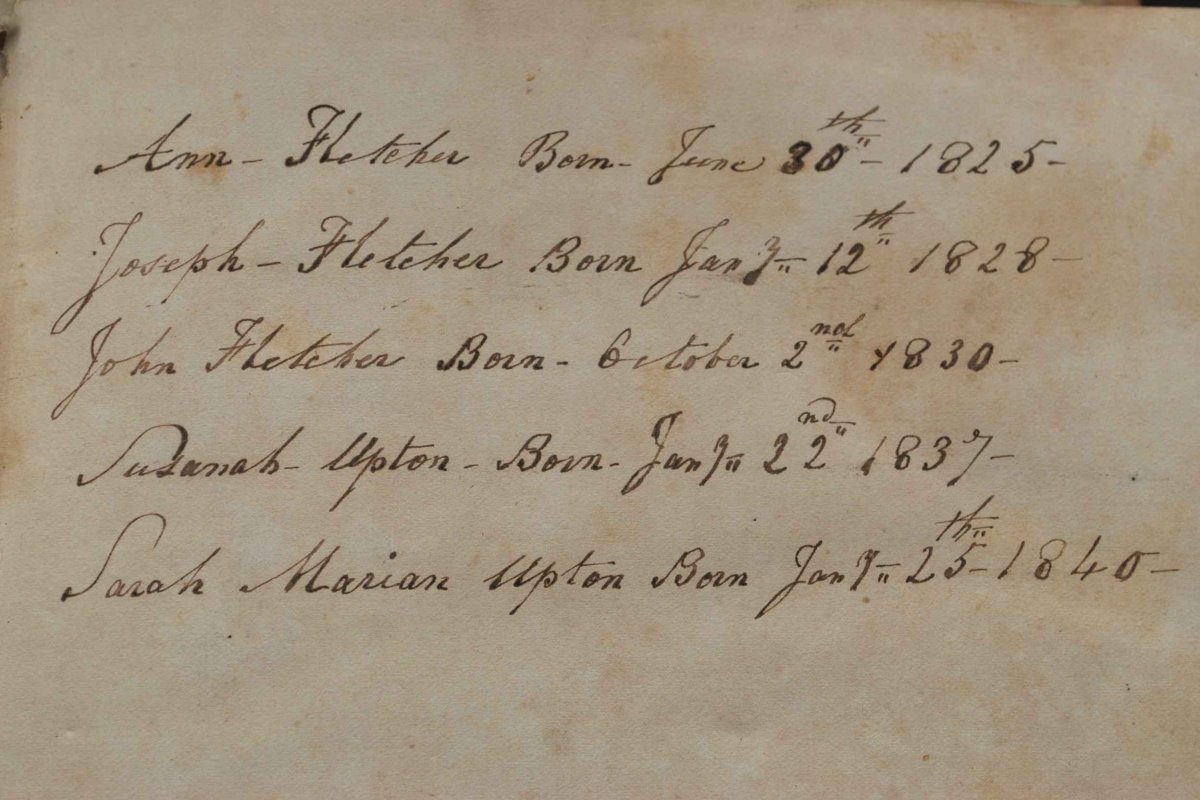 Ann - Fletcher Born - June 30th - 1825 -
Joseph - Fletcher Born Jany 12th 1828 -
John Fletcher Born - October 2nd 1830 -
Susanah - Upton - Born - Jany 22nd 1837 -
Sarah Marian Upton Born Jany 25th - 1840 -